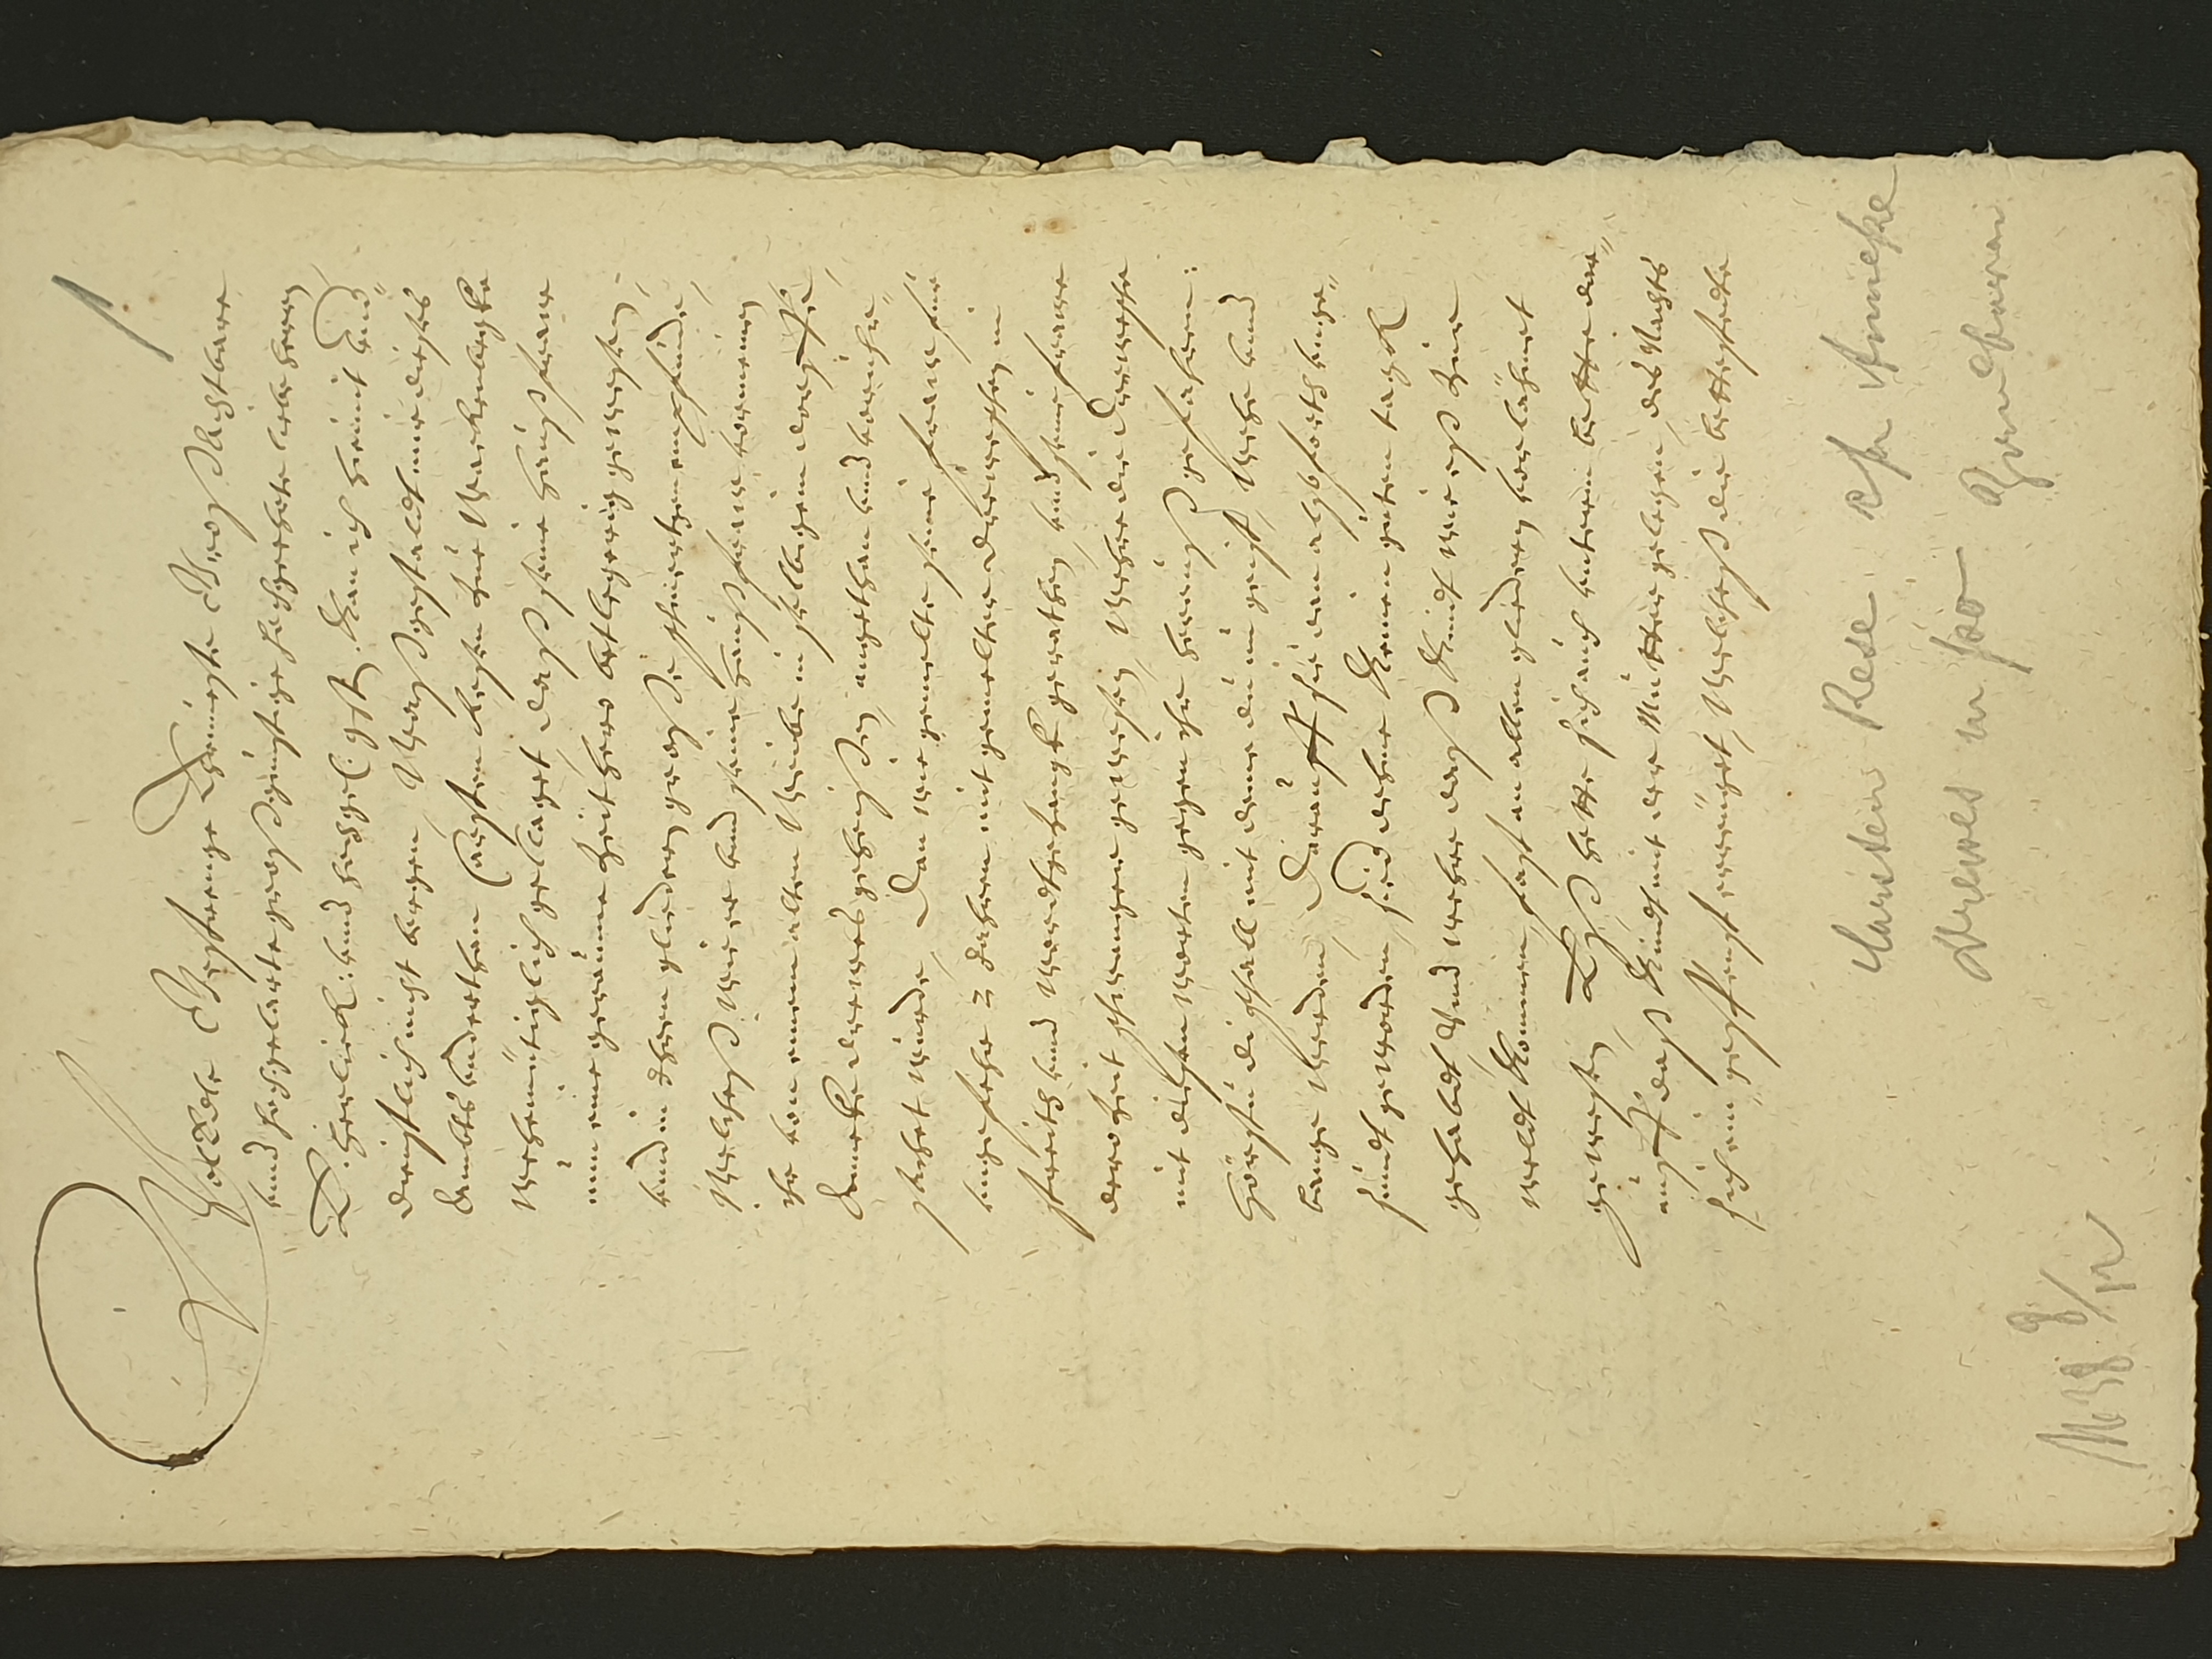 WolEdle Gestrenge Ehrnueste Großachtbare
vnd hochgelarte großgünstige hochgeehrte liebe herrn
E. herlick: vnd hochgel. gst. Kan ich hiemit vnd„
dienstlich nicht bergen, Waßgestaldt mir dieses
Ambts vnderthan Carsten Resen zur Wackenbegke
wehemütiglich geclaget, daß seine haußfraw
nun eine geraume Zeit hero betlegerig gewesen,
vnd in Ihren gliedern große schmertzen empfinde,
Welcheß wie er vnd seine haußfraw vormeinen
ihr von einem alten Weibe in selbigem dorffe,
Anneke drewes geheißen, angethan vnd voruhr„
sachet würde, Dan wie gemelte seine fraw für
vngefehr 2 Jahren mit gemelter Dreweschen in
streith vnd wordtgezangk gerathen, vnd seine frawe
dero Zeit schwanger gewesen, Wehre die Drewesche
mit diesen worten gegen ihr heraußgefahren:
Hörstu di schall mit deme du im geist, Wehe vnd
bange werden, Darauff sie dan alsoforth vnge„
sundt geworden, sied dehme Keinen guten tagk
gehabdt, Vnd wehre daß Kindt wie eß zur
weldt Kommen, fast an allen gliedern vorlähmet
gewesen, Eß hette sich auch vnterm bette dar„
auff daß Kindt mit der Mutter gelegen, des Nachts
sich ein gespenst erreuget, Welcheß die bettestedte
Carsten Rese c/a Anneke
Drewes in pto Zauberei
M 38 8/12
1